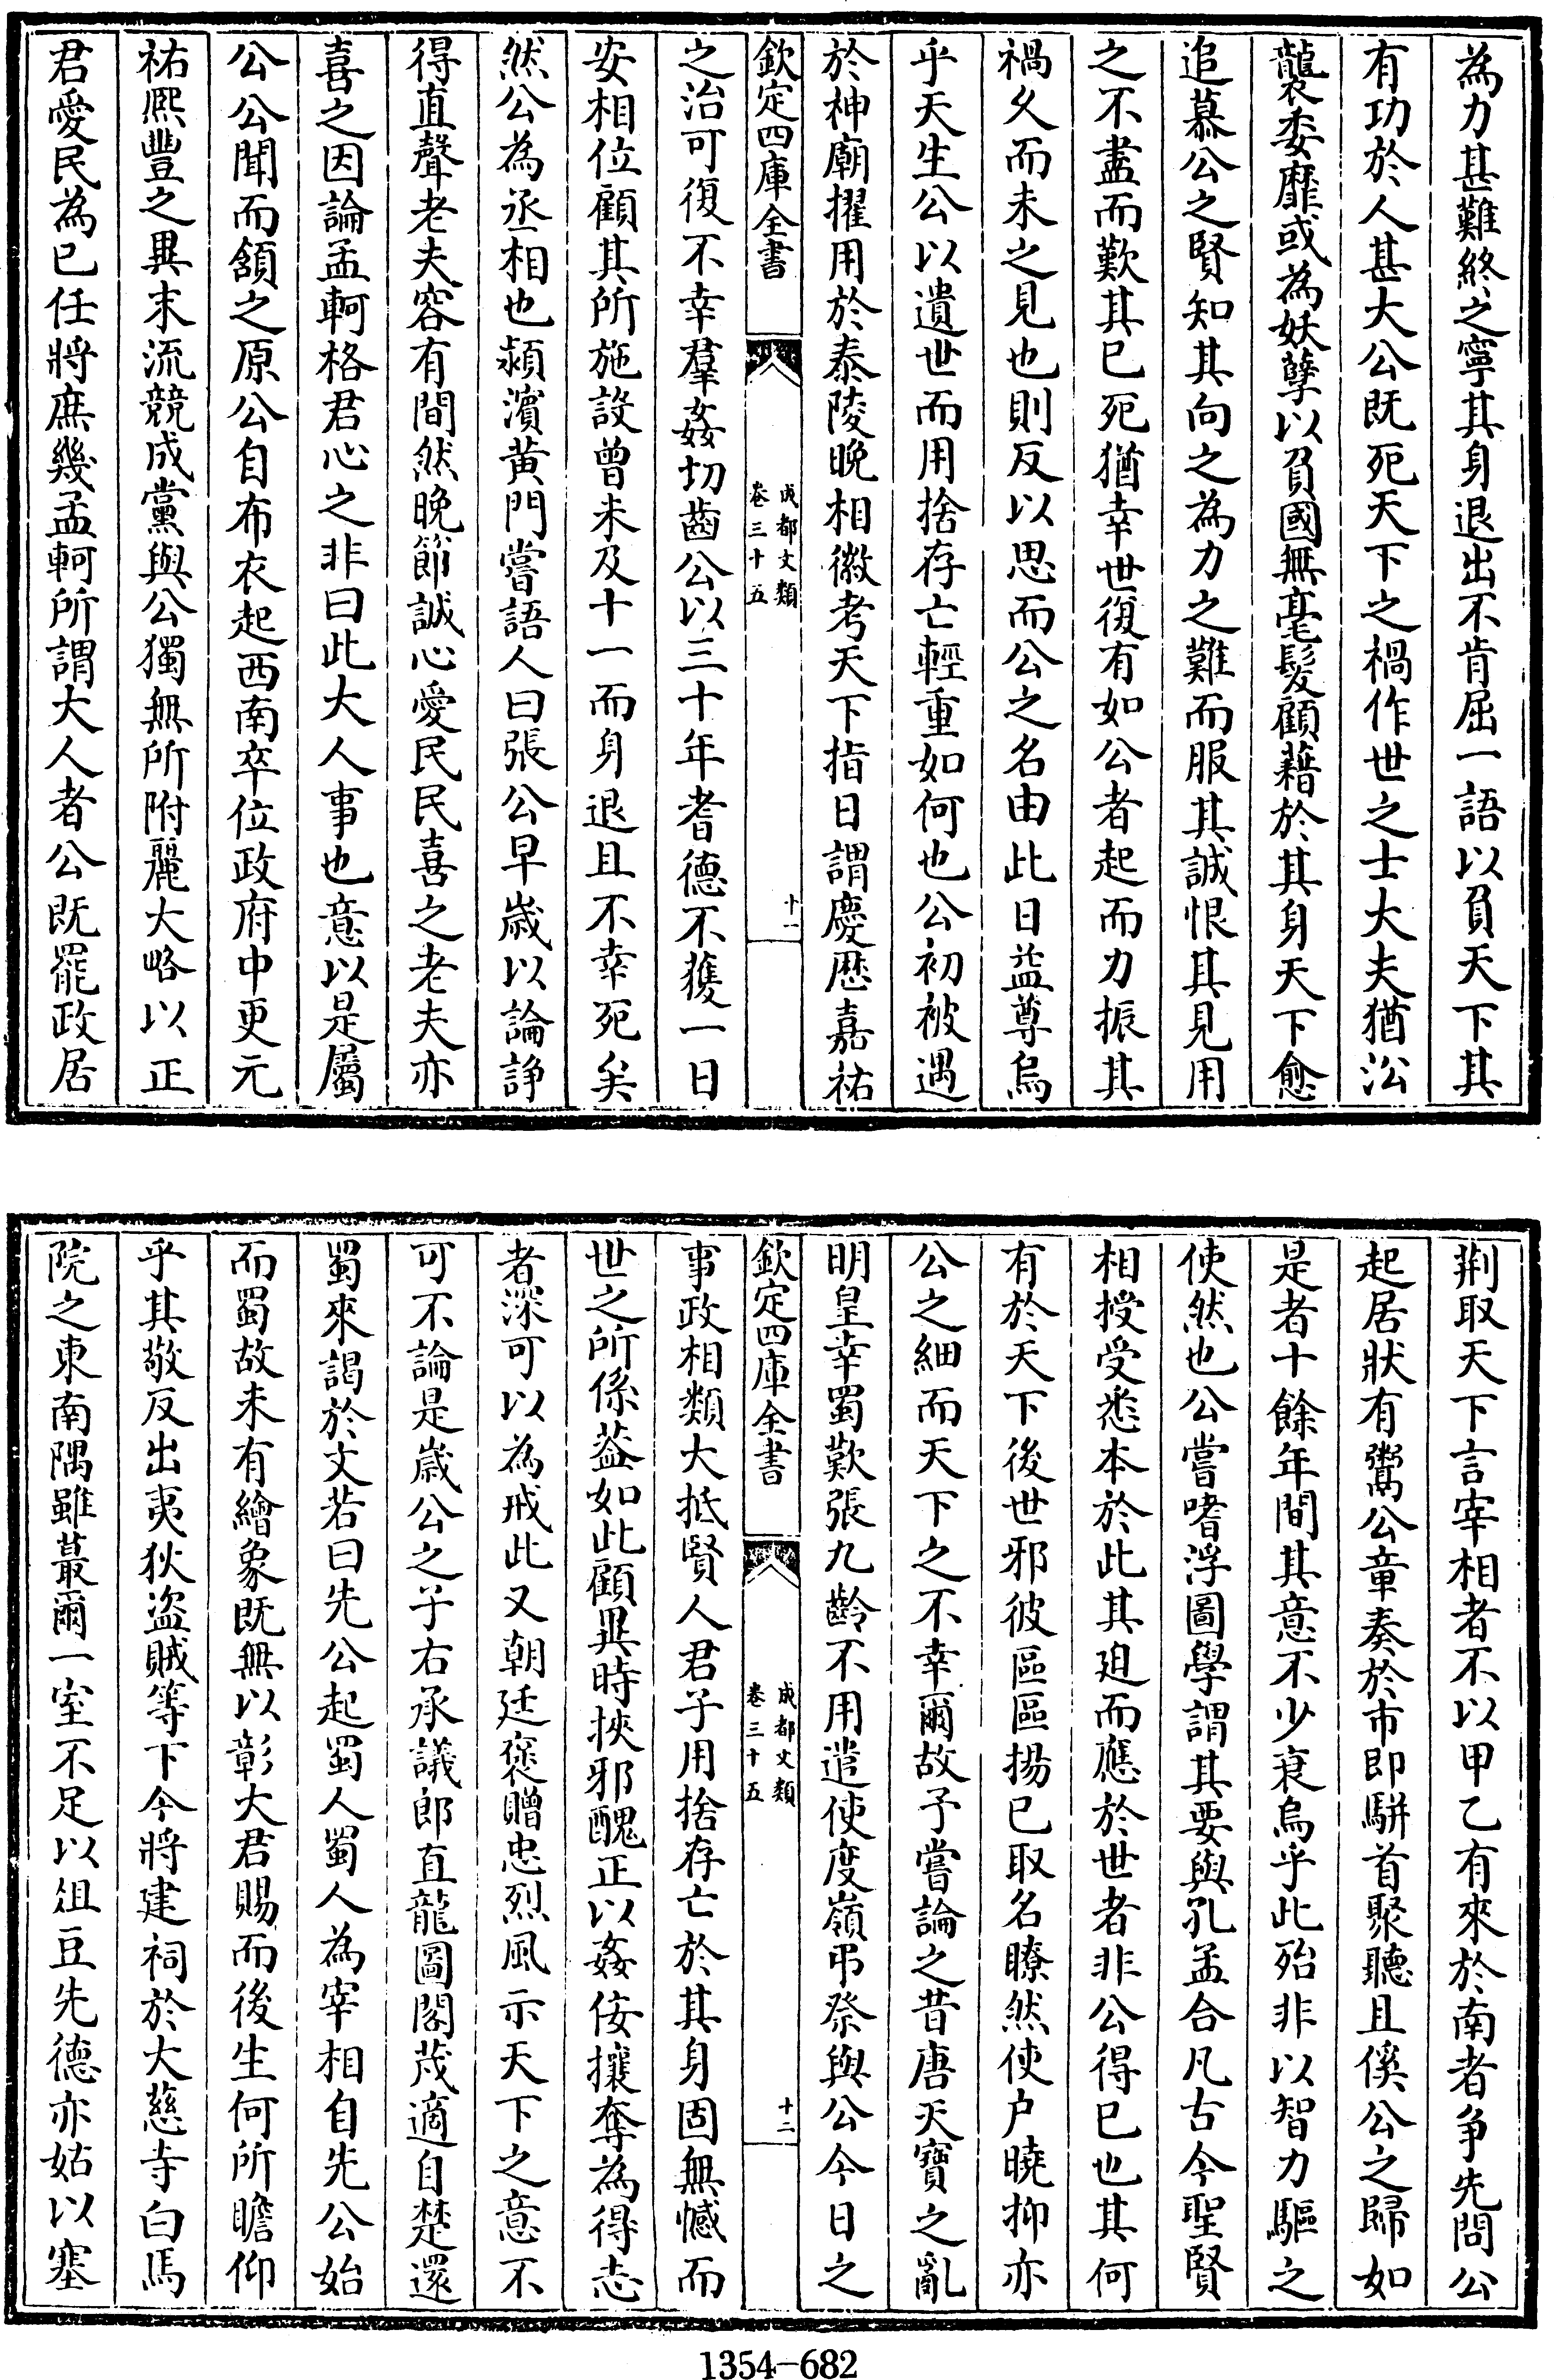 為力甚難終之寧其身退出不肯屈一語以負天下其
有功於人甚大公既死天下之禍作世之士大夫猶訟
襲委靡或為妖孽以負國無毫髮顧藉於其身天下愈
追慕公之賢知其向之為力之難而服其誠恨其見用
之不盡而歎其已死猶幸世復有如公者起而力振其
禍久而未之見也則反以思而公之名由此日益尊烏
乎天生公以遺世而用捨存亡輕重如何也公初被遇
於神廟擢用於泰陵晚相徽考天下指日謂慶厯嘉祐
欽定四庫全書
成都文類
卷三十五
十一
之治可復不幸羣姦切齒公以三十年耆德不獲一日
安相位顧其所施設曾未及十一而身退且不幸死矣
然公為丞相也潁濱黄門嘗語人曰張公早嵗以論諍
得直聲老夫容有間然晚節誠心愛民民喜之老夫亦
喜之因論孟軻格君心之非曰此大人事也意以是屬
公公聞而頷之原公自布衣起西南卒位政府中更元
祐熈豐之異末流競成黨與公獨無所附麗大略以正
君愛民為已任將庶幾孟軻所謂大人者公既罷政居
荆取天下言宰相者不以甲乙有來於南者争先問公
起居狀有鬻公章奏於市即駢首聚聽且傒公之歸如
是者十餘年間其意不少衰烏乎此殆非以智力驅之
使然也公嘗嗜浮圖學謂其要與孔孟合凡古今聖賢
相授受悉本於此其廹而應於世者非公得已也其何
有於天下後世邪彼區區揚已取名瞭然使户曉抑亦
公之細而天下之不幸爾故予嘗論之昔唐天寶之亂
明皇幸蜀歎張九齡不用遣使度嶺弔祭與公今日之
欽定四庫全書
成都文類
卷三十五
十二
事政相類大抵賢人君子用捨存亡於其身固無憾而
世之所係葢如此顧異時挾邪醜正以姦佞攘奪為得志
者深可以為戒此又朝廷褒贈忠烈風示天下之意不
可不論是嵗公之子右承議郎直龍圖閣茂適自楚還
蜀來謁於文若曰先公起蜀人蜀人為宰相自先公始
而蜀故未有繪象既無以彰大君賜而後生何所瞻仰
乎其敬反出夷狄盗賊等下今將建祠於大慈寺白馬
院之東南隅雖蕞爾一室不足以俎豆先德亦姑以塞
1354-682